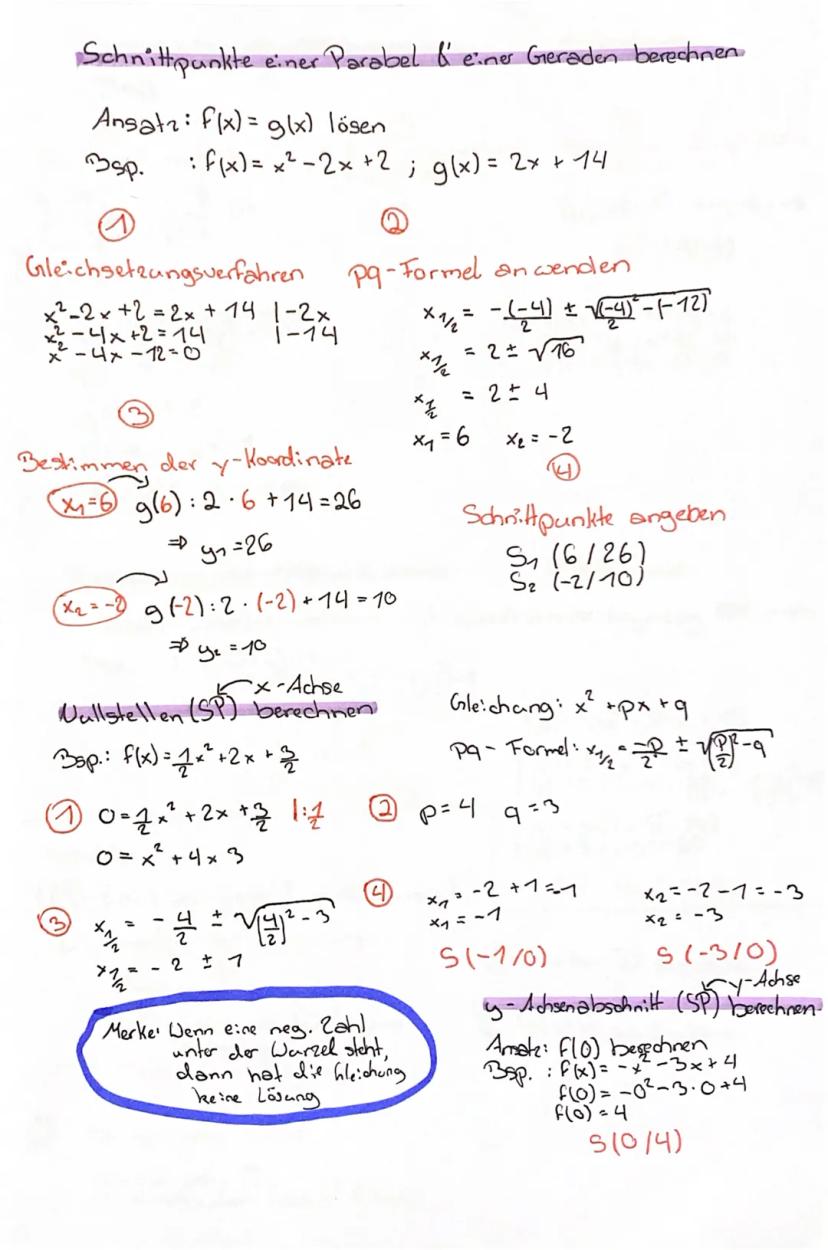 Schnittpunkte einer Parabel & einer Geraden berechnen
Ansatz: f(x) = g(x) lösen
Bsp. : f(x) = x² - 2x + 2 ; g(x) = 2x + 14
①
Gleichsetzungsverfahren
x² - 2x + 2 = 2x + 14 | -2x
x² - 4x + 2 = 14 | -14
x² - 4x - 12 = 0
②
pq-Formel anwenden
x1/2 = -(-4)/2 ± √((-4)/2)² - (-12)
x1/2 = 2 ± √16
x1/2 = 2 ± 4
x₁ = 6 x₂ = -2
③
Bestimmen der y-Koordinate
x₁ = 6 g(6) : 2 · 6 + 14 = 26
⇒ y₁ = 26
x₂ = -2 g(-2) : 2 · (-2) + 14 = 10
⇒ y₂ = 10
④
Schnittpunkte angeben
S₁ (6/26)
S₂ (-2/10)
x-Achse
Nullstellen (SP) berechnen
Bsp.: f(x) = 1/2 x² + 2x + 3/2
Gleichung: x² + px + q
pq-Formel: x1/2 = -p/2 ± √(p/2)² - q
① 0 = 1/2 x² + 2x + 3/2 | : 1/2
0 = x² + 4x 3
② p = 4 q = 3
③ x1/2 = - 4/2 ± √(4/2)² - 3
x1/2 = - 2 ± 1
④ x₁ = -2 + 1 = -1 x₂ = -2 - 1 = -3
x₁ = -1 x₂ = -3
S(-1/0) S(-3/0)
Merke: Wenn eine neg. Zahl
unter der Wurzel steht,
dann hat die Gleichung
keine Lösung
y-Achse
y-Achsenabschnitt (SP) berechnen
Ansatz: f(0) berechnen
Bsp. : f(x) = -x² - 3x + 4
f(0) = -0² - 3 · 0 + 4
f(0) = 4
S(0/4)